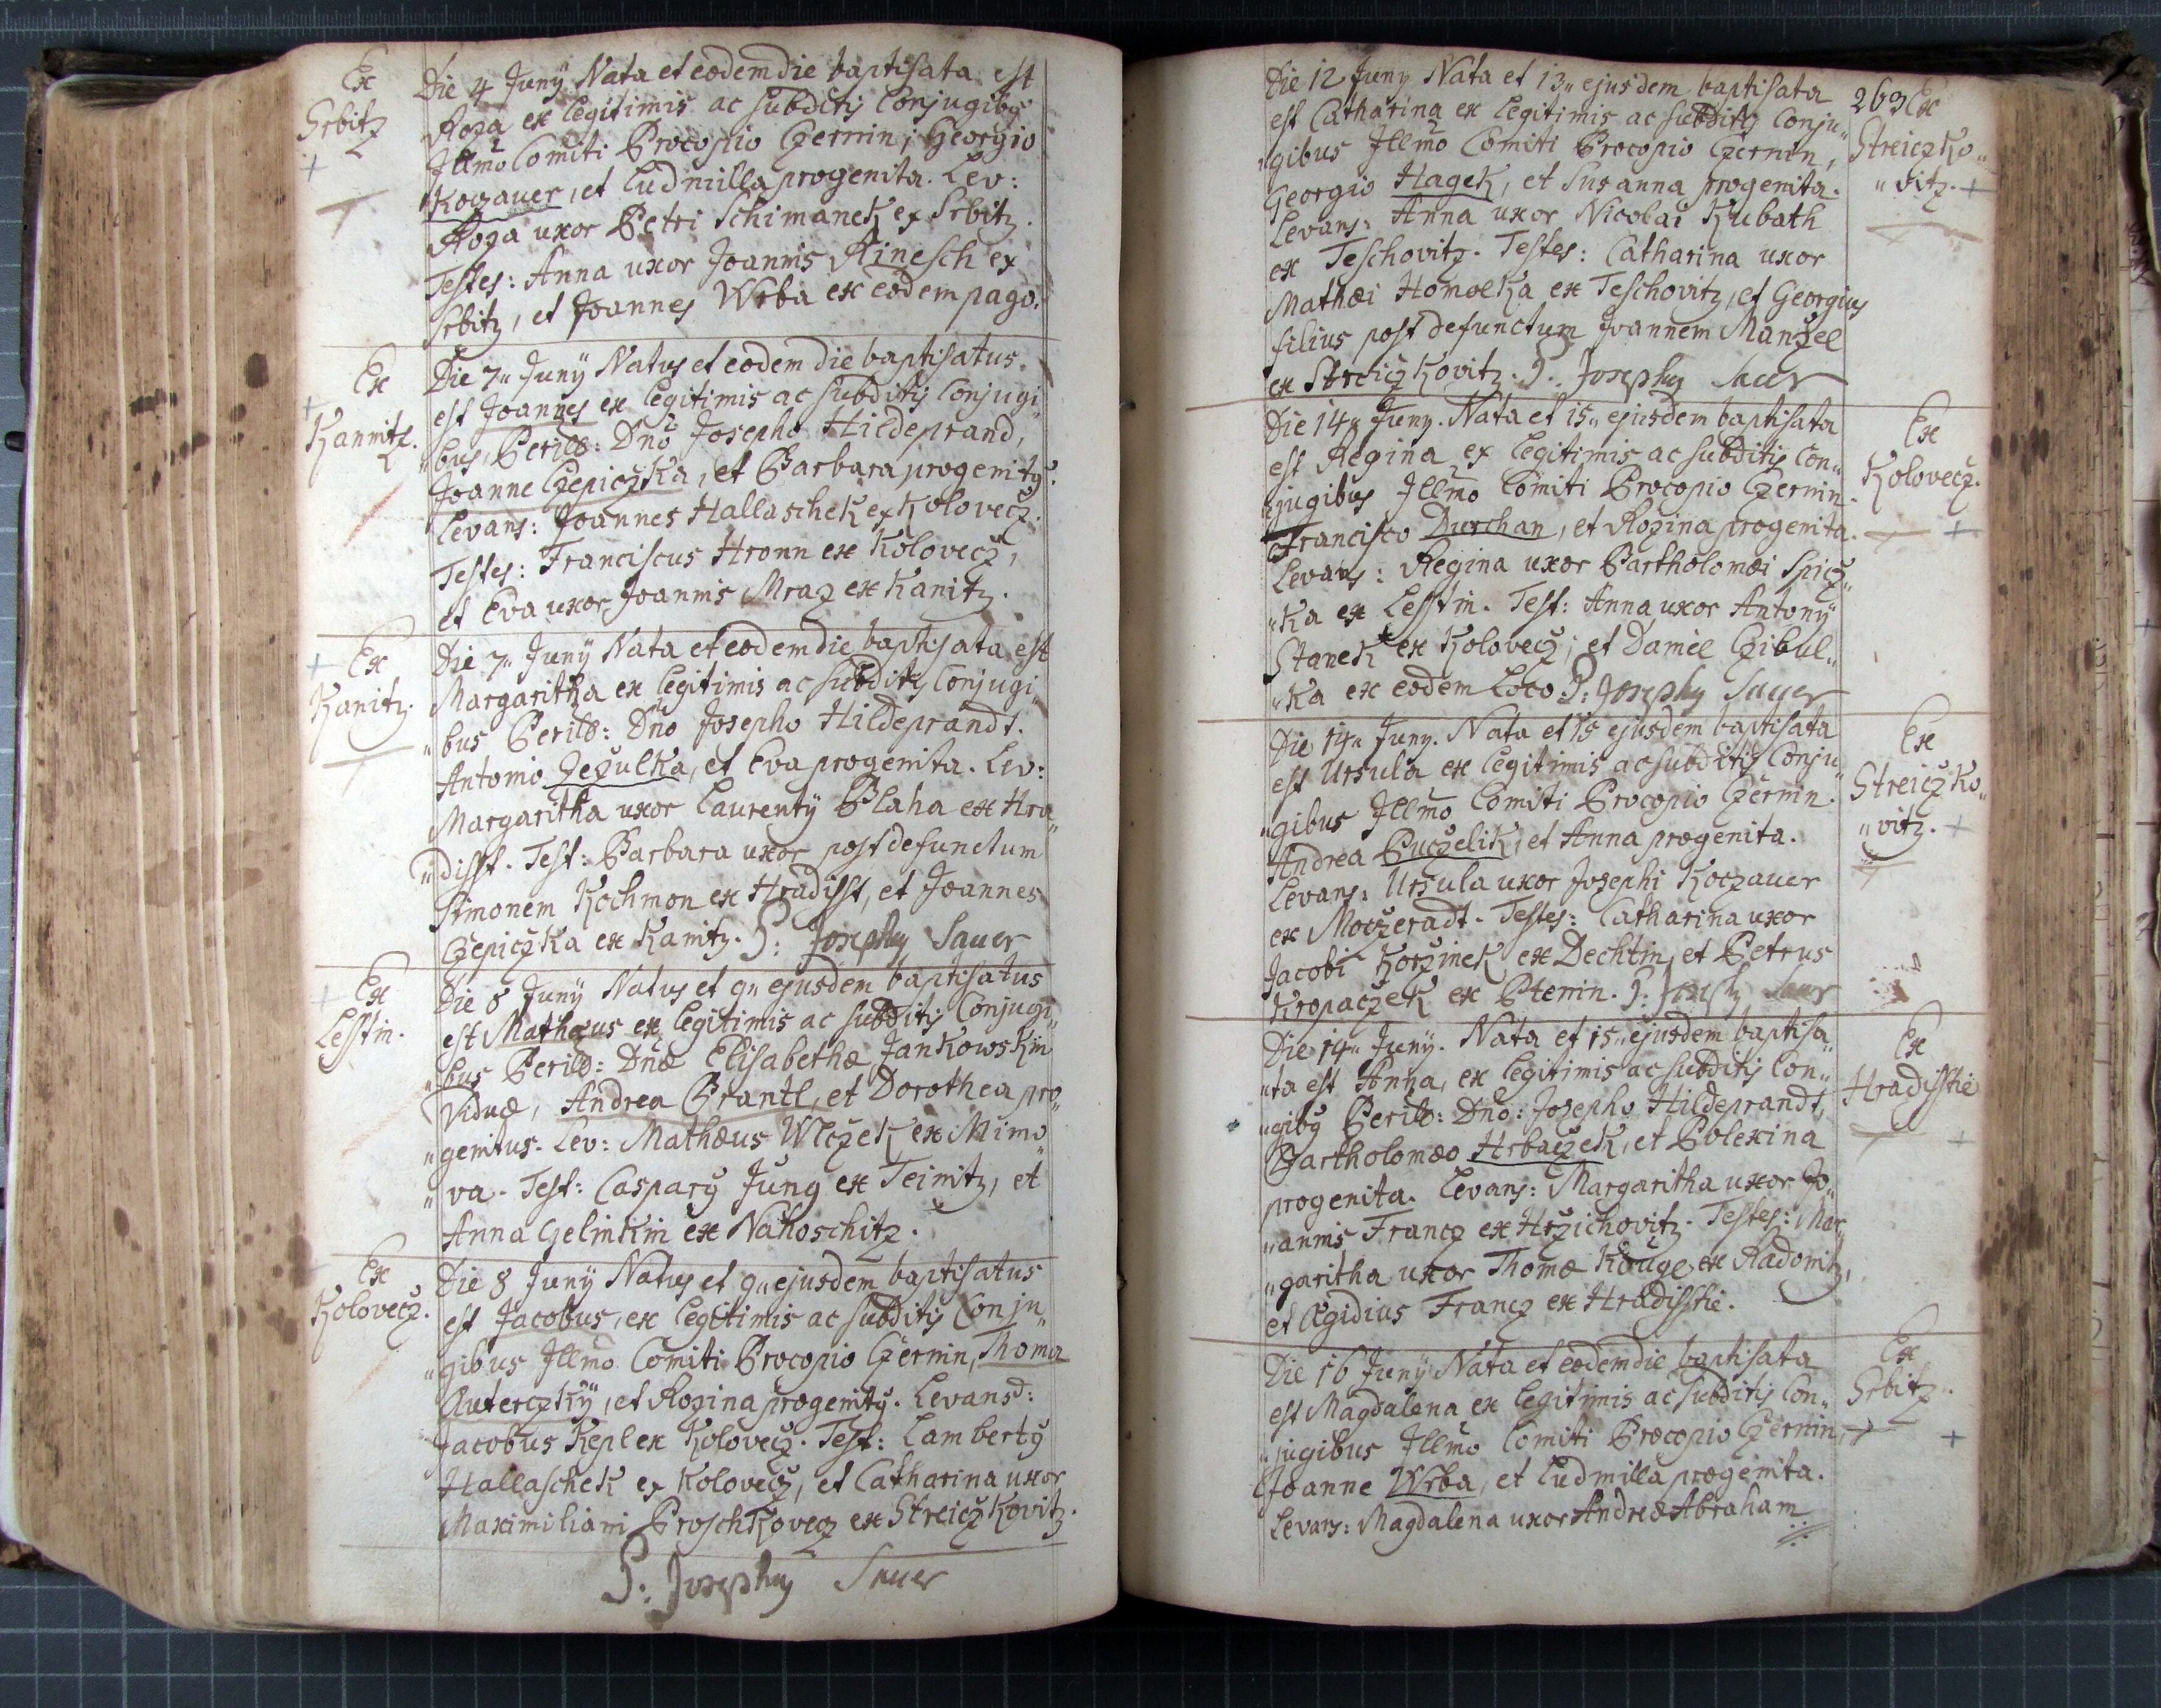 Ex
Srbitz
Die 4 Juny Nata et eodem die baptisata est
Roza ex legitimis ac subditis Conjugibus
Illmo Comiti Procopio Czernin, Georgio
Koczauer, et Ludmilla progenita. Lev:
Roza uxor Petri Schimanek ex Srbitz.
Testes: Anna uxor Joannis Rinesch ex
Srbitz, et Joannes Wrba ex eodem pago.
Ex
Kannitz.
Die 7" Juny Natus et eodem die baptisatus
est Joannes ex legitimis ac subditis Conjugi"
"bus, Perill: Dno Josepho Hildeprand,
Joanne Czepiczka, et Barbara progenitus.
Levans: Joannes Hallaschek ex Kolovecz.
Testes: Franciscus Hronn ex Kolovecz,
et Eva uxor Joannis Mraz ex Kanitz.
Ex
Kanitz.
Die 7" Juny Nata et eodem die baptisata est
Margaritha ex legitimis ac subditis Conjugi"
"bus Perill: Dno Josepho Hildeprandt.
Antonio Zezulka, et Eva progenita. Lev:
Margaritha uxor Laurenty Blaha ex Hra"
"disst. Test: Barbara uxor post defunctum
Simonem Kochmon ex Hradisst, et Joannes
Czepiczka ex Kanitz. P: Josephus Sauer
Ex
Lesstin.
Die 8 Juny Natus et 9" ejusdem baptisatus
est Mathæus ex legitimis ac subditis Conjugi"
"bus Perill: Dnæ Elisabethæ Jankowskin
Viduæ, Andrea Brantl, et Dorothea pro"
"genitus. Lev: Mathæus Wlczek ex Mimo"
"va. Test: Casparus Jung ex Teinitz, et
Anna Gelinkin ex Nahoschitz.
Ex
Kolovecz.
Die 8 Juny Natus et 9" ejusdem baptisatus
est Jacobus, ex legitimis ac subditis Conju"
"gibus Illmo Comiti Procopio Czernin, Thoma
Auterczky, et Rozina progenitus. Levans:
Jacobus Kepl ex Kolovecz. Test: Lambertus
Hallaschek ex Kolovecz, et Catharina uxor
Maximiliani Proschkovecz ex Streiczkovitz.
P: Josephus Sauer
263
Ex
Streiczko"
"vitz.
Die 12 Juny Nata et 13" ejusdem baptisata
est Catharina ex legitimis ac subditis Conju"
"gibus Illmo Comiti Procopio Czernin,
Georgio Hagek, et Susanna progenita.
Levans: Anna uxor Nicolai Kubath
ex Teschovitz. Testes: Catharina uxor
Mathæi Homolka ex Teschovitz, et Georgius
filius post defunctum Joannem Manzel
ex Streiczkovitz. P: Josephus Sauer
Ex
Kolovecz.
Die 14" Juny. Nata et 15" ejusdem baptisata
est Regina ex legitimis ac subditis Con"
"jugibus Illmo Comiti Procopio Czernin.
Francisco Durchan, et Rozina progenita.
Levans: Regina uxor Bartholomæi Spicz"
"ka ex Lesstin. Test: Anna uxor Antony
Stanek ex Kolovecz, et Daniel Czibul"
"ka ex eodem Loco P: Josephus Sauer
Ex
Streiczko"
"vitz.
Die 14" Juny. Nata et 15 ejusdem baptisata
est Ursula ex legitimis ac subditis Conju"
"gibus Illmo Comiti Procopio Czernin.
Andrea Puczelik, et Anna progenita.
Levans: Ursula uxor Josephi Koczauer
ex Moczeradt. Testes: Catharina uxor
Jacobi Korzinek ex Dechtin, et Petrus
Kropaczek ex Ptenin. P: Josephus Sauer
Ex
Hradisstie
Die 14" Juny. Nata et 15" ejusdem baptisa"
"ta est Anna, ex legitimis ac subditis Con"
"gibus Perill: Dno: Josepho Hildeprandt,
Bartholomæo Hrbaczek, et Polexina
progenita. Levans: Margaritha uxor Jo"
"annis Francz ex Hrzichovitz. Testes: Mar"
"garitha uxor Thomæ Kouge ex Radonitz,
et Ægidius Francz ex Hradisstie.
Ex
Srbitz.
Die 16 Juny Nata et eodem die baptisata
est Magdalena ex legitimis ac subditis Con"
"jugibus Illmo Comiti Procopio Czernin,
Joanne Wrba, et Ludmilla progenita.
Levans: Magdalena uxor Andreæ Abraham